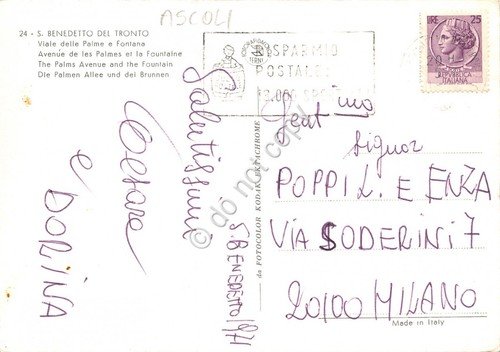 ASCOLI
24 - S. BENEDETTO DEL TRONTO
Viale delle Palme e Fontana
Avenue de les Palmes et la Fountaine
The Palms Avenue and the Fountain
Die Palmen Allee und dei Brunnen
RISPARMIO
POSTALE
LIRE 25
REPUBBLICA
ITALIANA
Salutissimi
Cesare
e DORINA
S BENEDETTO 1971
da FOTOCOLOR KODAK EKTACHROME
do not copy
Gent.imo
Signor
POPPI L. E ENZA
VIA SODERINI 7
20100 MILANO
Made in Italy